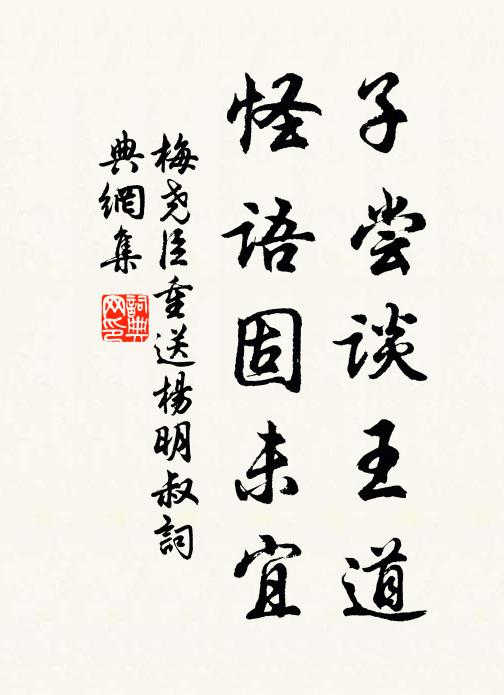 子尝谈王道
怪语固未宜
梅尧臣重送楊明叔詞
典網集
詞典网印